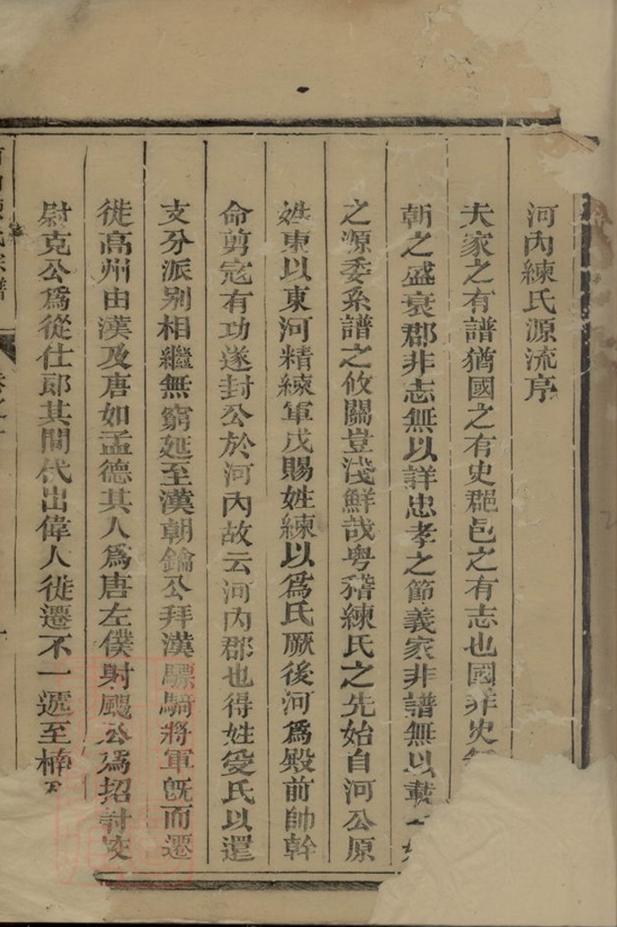 河內練氏源流序
夫家之有譜猶國之有史郡邑之有志也國非史無
朝之盛衰郡非志無以詳忠孝之節義家非譜無以載
之源委系譜之攸關豈淺鮮哉粵稽練氏之先始自河公原
姓東以東河精練軍戎賜姓練以為氏厥後河為殿前帥幹
命剪寇有功遂封公於河內故云河內郡也得姓受氏以還
支分派別相繼無窮延至漢朝鑰公拜漢驃騎將軍旣而遷
徙高州由漢及唐如孟德其人為唐左僕射颺公為招討校
尉克公為從仕郎其間代出偉人徙遷不一遞至楠